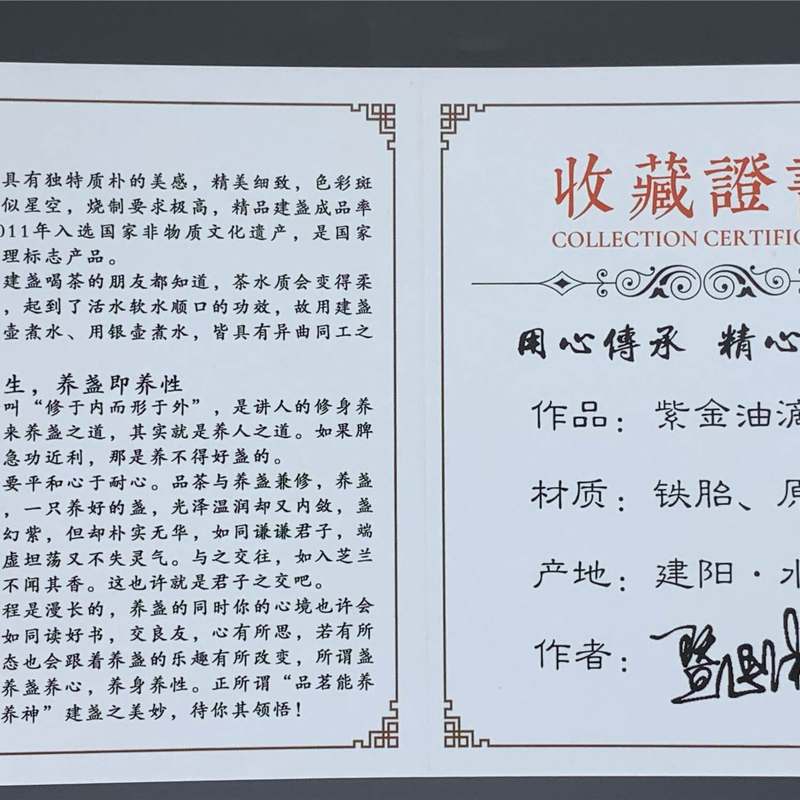 具有独特质朴的美感，精美细致，色彩斑
似星空，烧制要求极高，精品建盏成品率
011年入选国家非物质文化遗产，是国家
理标志产品。
建盏喝茶的朋友都知道，茶水质会变得柔
，起到了活水软水顺口的功效，故用建盏
壶煮水、用银壶煮水，皆具有异曲同工之
生，养盏即养性
叫“修于内而形于外”，是讲人的修身养
来养盏之道，其实就是养人之道。如果脾
急功近利，那是养不得好盏的。
要平和心于耐心。品茶与养盏兼修，养盏
，一只养好的盏，光泽温润却又内敛，盏
幻紫，但却朴实无华，如同谦谦君子，端
虚坦荡又不失灵气。与之交往，如入芝兰
不闻其香。这也许就是君子之交吧。
程是漫长的，养盏的同时你的心境也许会
如同读好书，交良友，心有所思，若有所
态也会跟着养盏的乐趣有所改变，所谓盏
养盏养心，养身养性。正所谓“品茗能养
养神”建盏之美妙，待你其领悟！
收藏證書
COLLECTION CERTIFIC
用心傳承 精心
作品：紫金油滴
材质：铁胎、原
产地：建阳·水
作者：